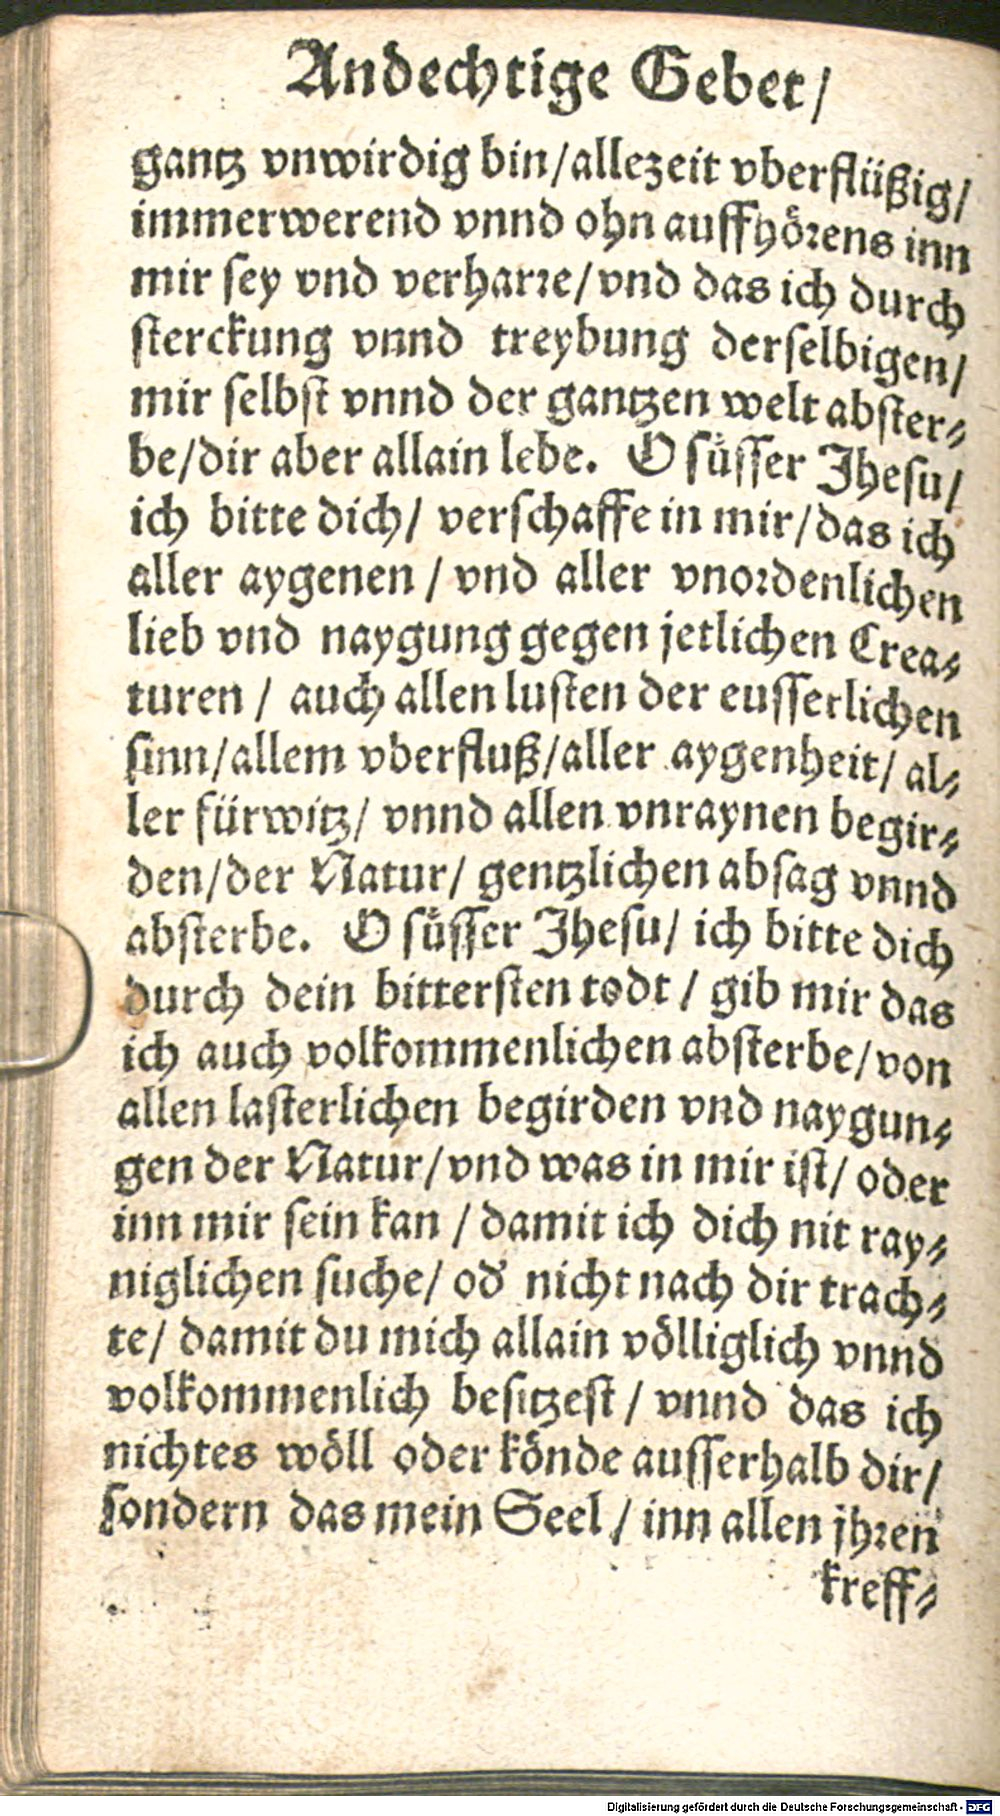 Andechtige Gebet/
gantz vnwirdig bin/allezeit vberflüßig/
immerwerend vnnd ohn auffhörens inn
mir sey vnd verharre/vnd das ich durch
sterckung vnnd treybung derselbigen/
mir selbst vnnd der gantzen welt abster⸗
be/dir aber allain lebe. O süsser Jhesu/
ich bitte dich/ verschaffe in mir/das ich
aller aygenen / vnd aller vnordenlichen
lieb vnd naygung gegen jetlichen Crea⸗
turen / auch allen lusten der eusserlichen
sinn/allem vberfluß/aller aygenheit/ al⸗
ler fürwitz/ vnnd allen vnraynen begir⸗
den/der Natur/ gentzlichen absag vnnd
absterbe. O süsser Jhesu/ ich bitte dich
durch dein bittersten todt / gib mir das
ich auch volkommenlichen absterbe/von
allen lasterlichen begirden vnd naygun⸗
gen der Natur/vnd was in mir ist/ oder
inn mir sein kan / damit ich dich nit ray⸗
niglichen suche/ od' nicht nach dir trach⸗
te/ damit du mich allain völliglich vnnd
volkommenlich besitzest / vnnd das ich
nichtes wöll oder könde ausserhalb dir/
sondern das mein Seel / inn allen jhren
kreff⸗
Digitalisierung gefördert durch die Deutsche Forschungsgemeinschaft - DFG